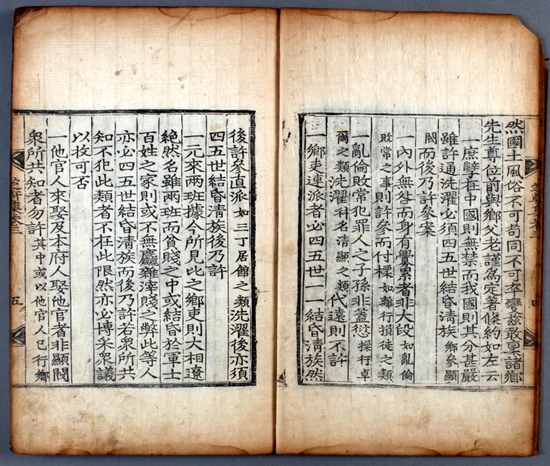 然國土風俗不可苟同不可率爾玆敢與諸鄉
先生尊位前與鄉父老謹爲定著條約如左云
庶孽在中國則無禁而我國則其分甚嚴
雖許通洗濯必須四五世結昏清族鄉參顯
閥而後乃許參案
一內外無咎而身有釁累者非大段如亂倫
敗常之事則許參而付標如雜行損徒之類
一亂倫敗常犯罪人之子孫非蓋愆操行卓
爾之類洗濯科名清顯之類代遠則不許
一鄉吏連派者必四五世一一結昏清族然
後許參直派如三丁居館之類洗濯後亦須
四五世結昏清族後乃許
一元來兩班據今所見比之鄉吏則大相遼
絶然名雖兩班而貧賤之中或結昏於軍士
百姓之家則或不無麗雜滓賤之弊此等人
亦必四五世結昏清族而後乃許若衆所共
知不犯此類者不在此限然亦必博采衆議
以攷可否
一他官人來娶及本府人娶他官者非顯閥
衆所共知者勿許其中或以他官人已行鄉
五